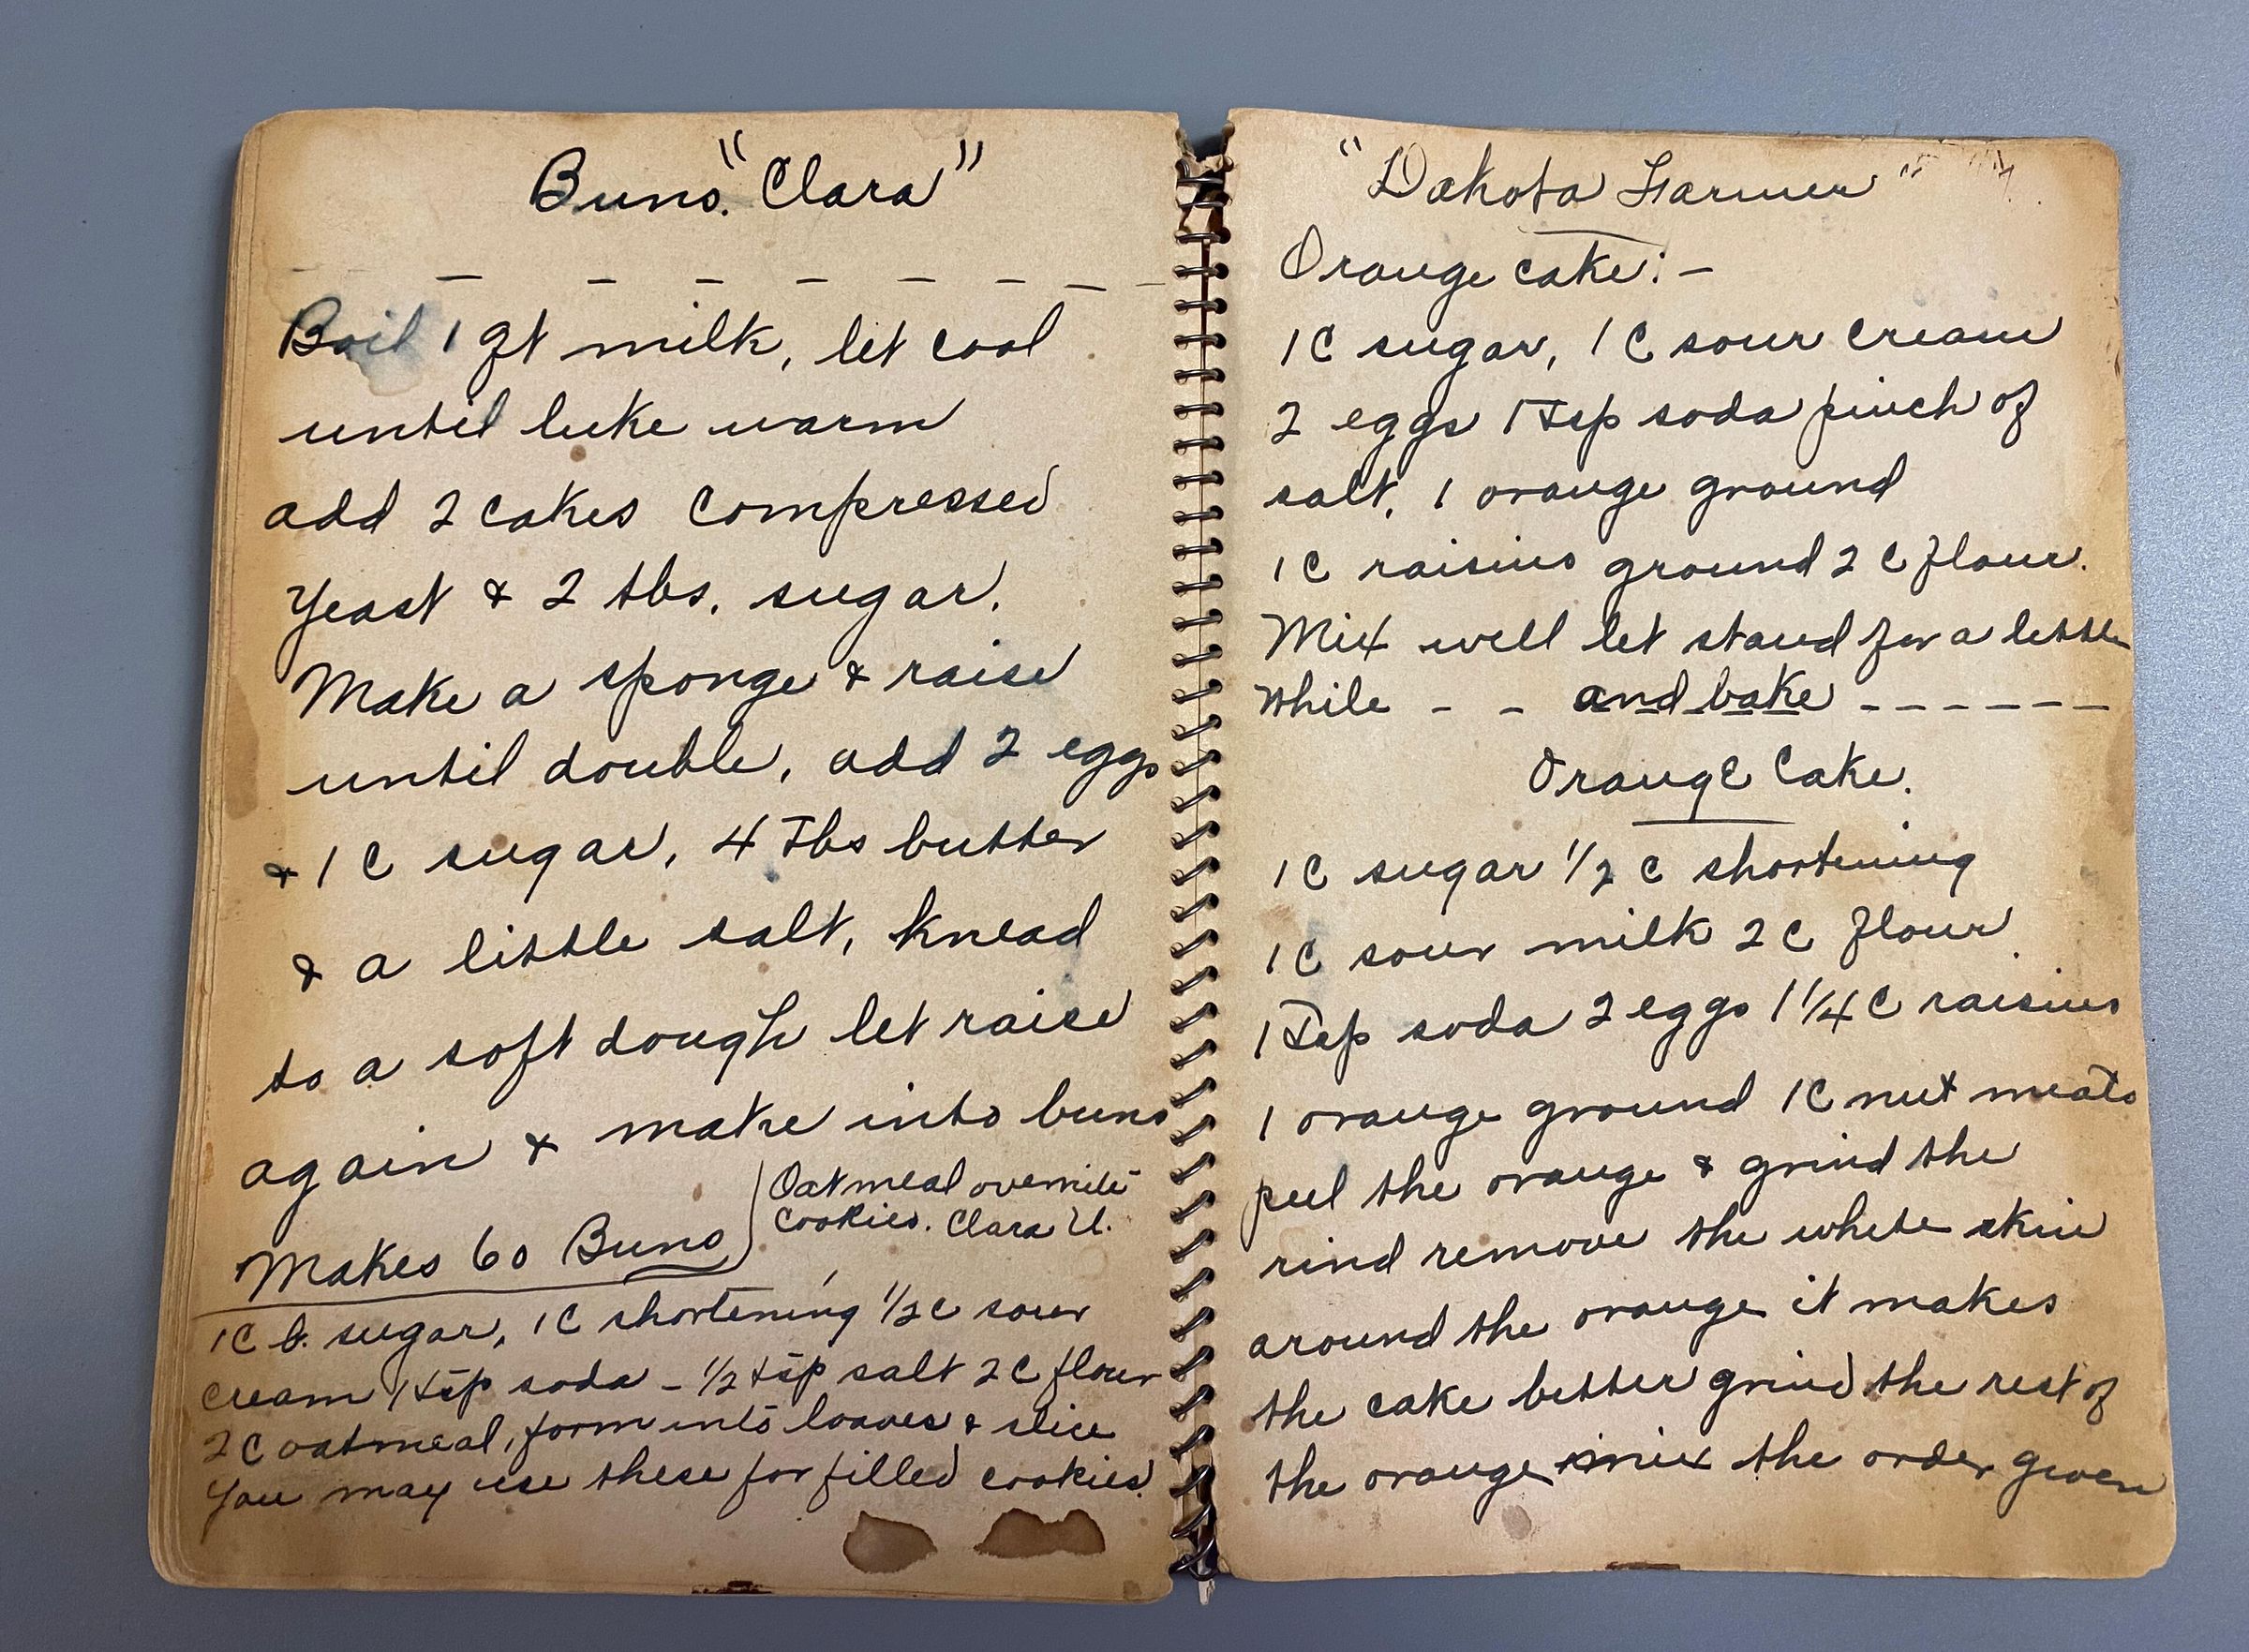 Buns. "Clara"
Boil 1 qt milk, let cool
until luke warm
add 2 cakes compressed
yeast & 2 tbs. sugar.
Make a sponge & raise
until double, add 2 eggs
& 1 C sugar, 4 Tbs butter
& a little salt, knead
to a soft dough let raise
again & make into buns
Makes 60 Buns
Oatmeal overnite
cookies. Clara U.
1C b. sugar, 1C shortening 1/2 c sour
cream 1 tsp soda - 1/2 tsp salt 2 C flour
2 C oatmeal, form into loaves & slice
You may use these for filled cookies.
"Dakota Farmer"
Orange cake:-
1C sugar, 1 C sour cream
2 eggs 1 Tsp soda pinch of
salt, 1 orange ground
1C raisins ground 2 C flour.
Mix well let stand for a little
while - - and bake - - - - - -
Orange Cake.
1C sugar 1/2 C shortening
1C sour milk 2 C flour
1 Tsp soda 2 eggs 1 1/4 C raisins
1 orange ground 1C nut meats
peel the orange & grind the
rind remove the white skin
around the orange it makes
the cake better grind the rest of
the orange mix the order given